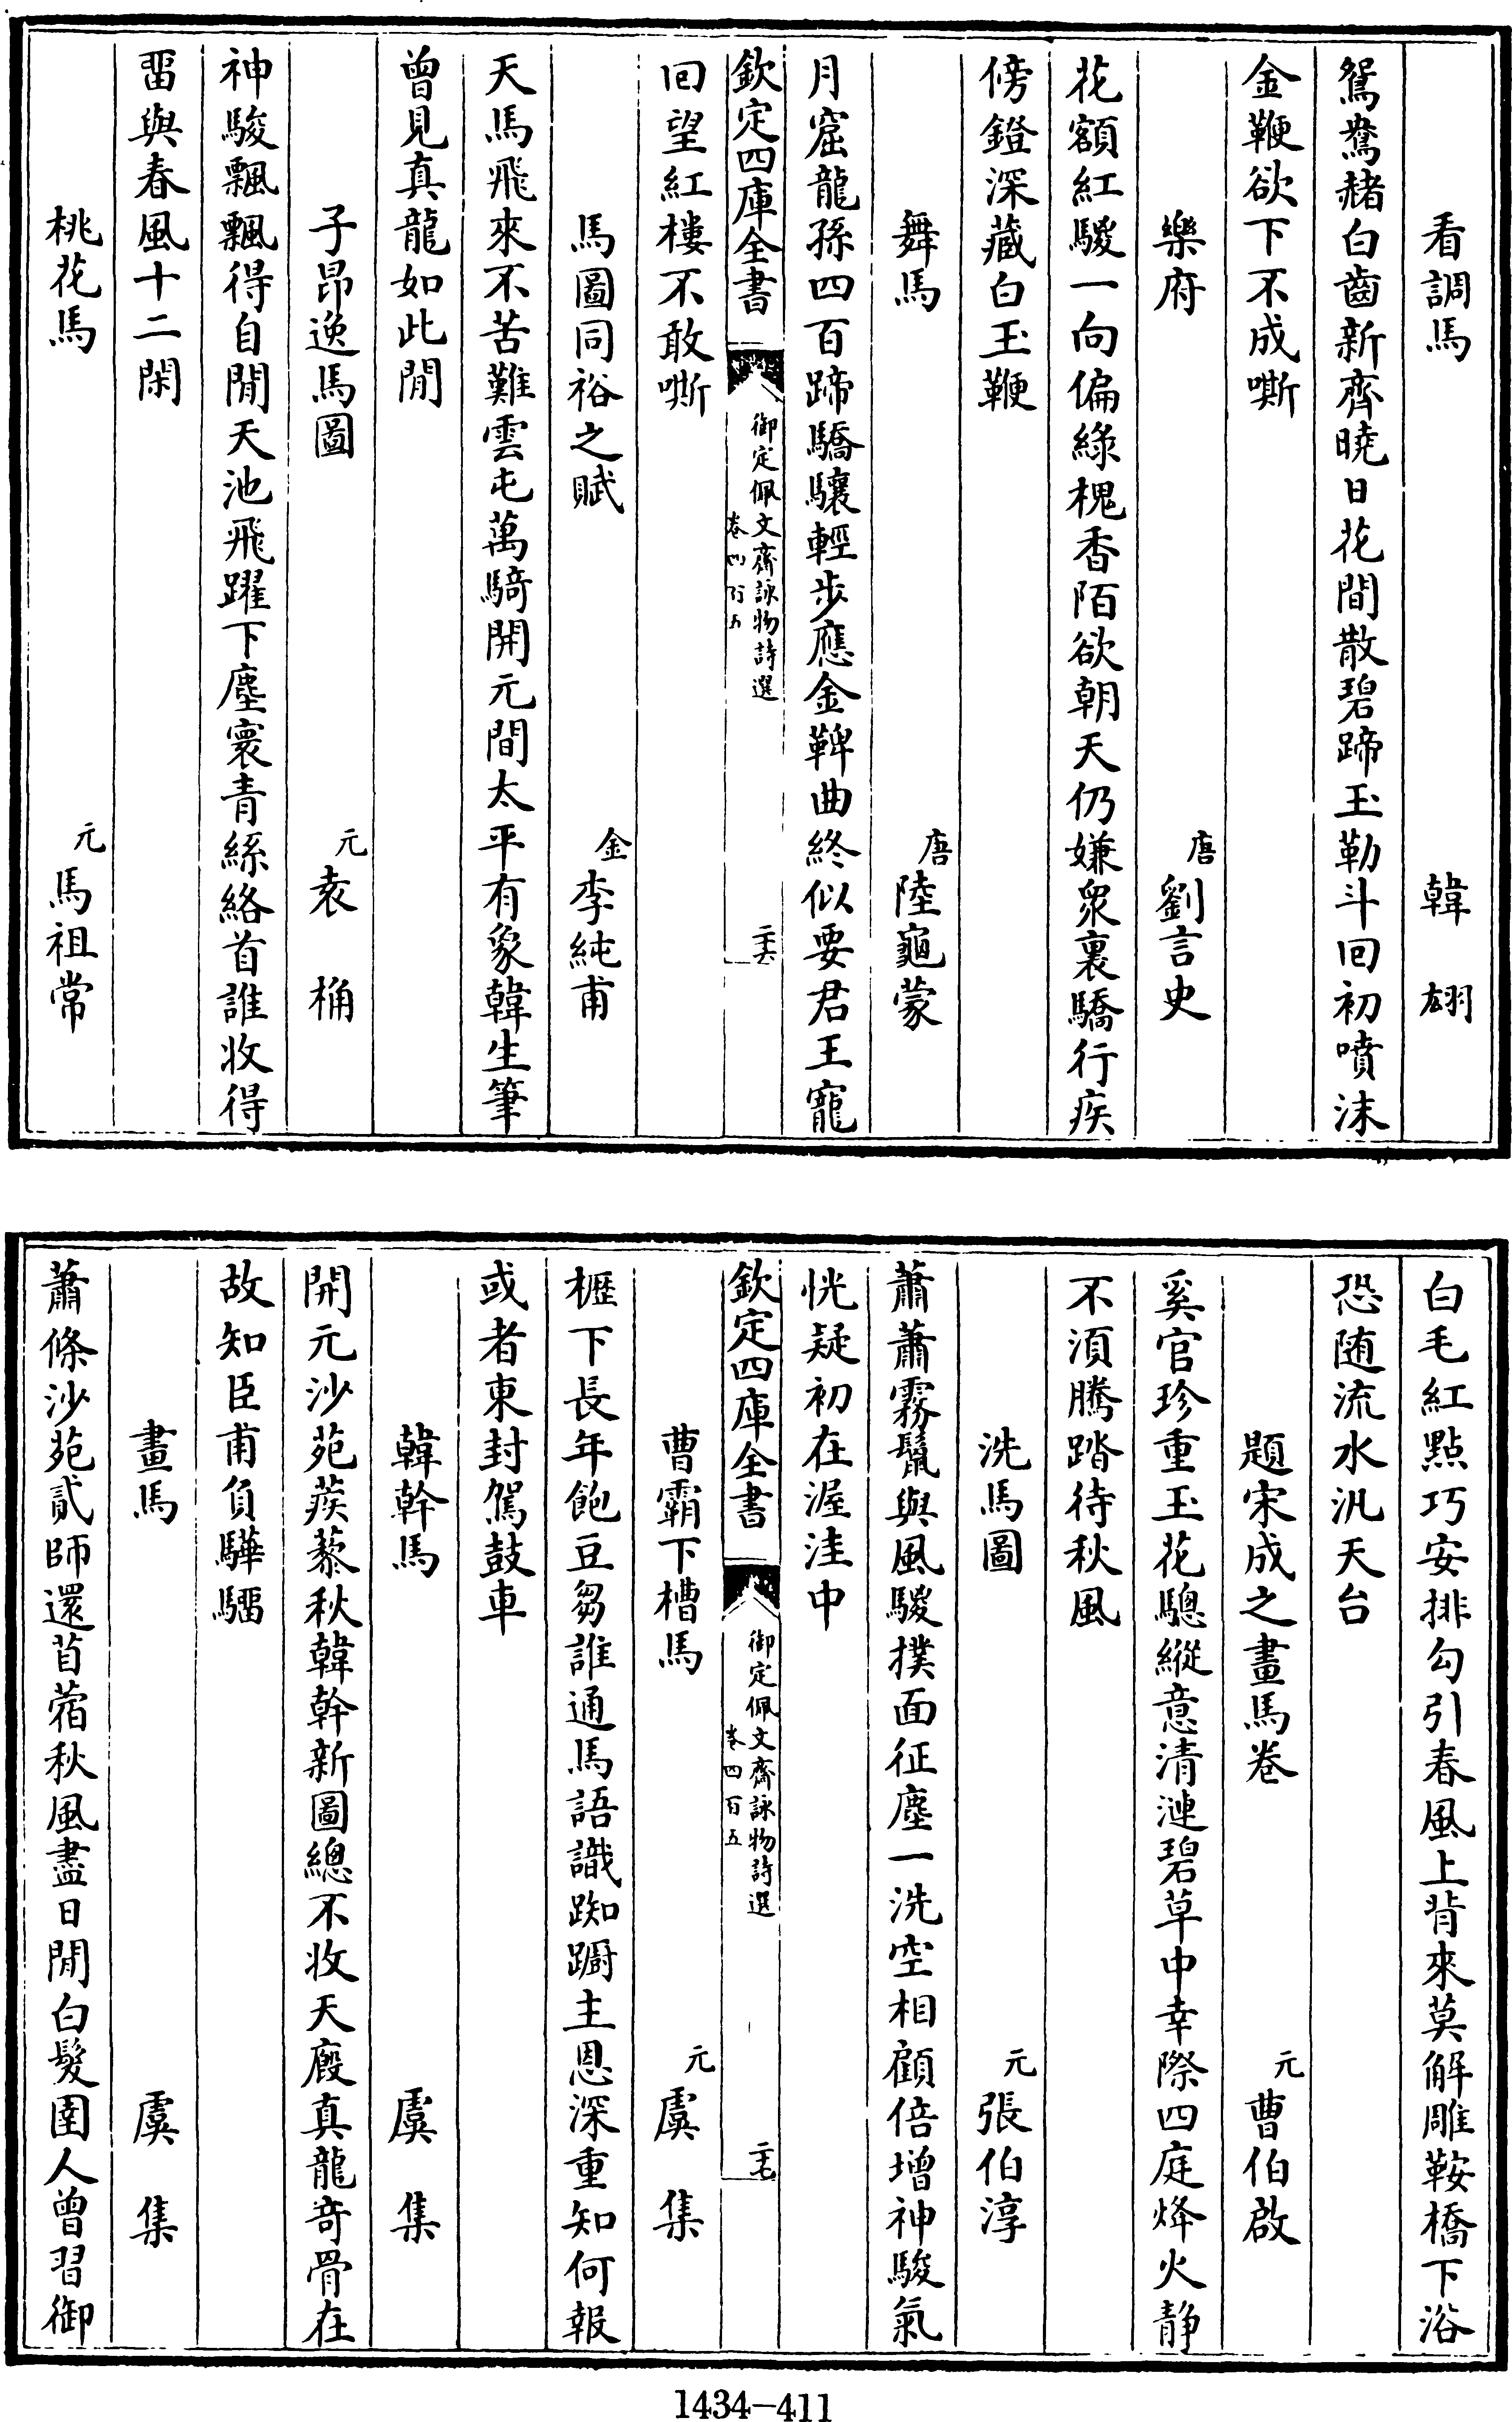 看調馬 韓翃
鴛鴦赭白齒新齊曉日花間散碧蹄玉勒斗回初噴沫
金鞭欲下不成嘶
樂府 唐劉言史
花額紅騣一向偏綠槐香陌欲朝天仍嫌衆裏驕行疾
傍鐙深藏白玉鞭
舞馬 唐陸龜蒙
月窟龍孫四百蹄驕驤輕步應金鞞曲終似要君王寵
回望紅樓不敢嘶
欽定四庫全書 御定佩文齋詠物詩選 卷四百五 二十六
馬圖同裕之賦 金李純甫
天馬飛來不苦難雲屯萬騎開元間太平有象韓生筆
曾見真龍如此閒
子昂逸馬圖 元袁桷
神駿飄飄得自閒天池飛躍下塵寰青絲絡首誰收得
畱與春風十二閑
桃花馬 元馬祖常
白毛紅點巧安排勾引春風上背來莫解雕鞍橋下浴
恐随流水汎天台
題宋成之畫馬卷 元曹伯啟
奚官珍重玉花驄縱意清漣碧草中幸際四庭烽火靜
不須騰踏待秋風
洗馬圖 元張伯淳
蕭蕭霧鬛與風騣撲面征塵一洗空相顧倍增神駿氣
恍疑初在渥洼中
欽定四庫全書 御定佩文齋詠物詩選 卷四百五 二十七
曹霸下槽馬 元虞集
櫪下長年飽豆芻誰通馬語識踟躕主恩深重知何報
或者東封駕鼓車
韓幹馬 虞集
開元沙苑蒺藜秋韓幹新圖總不收天廄真龍奇骨在
故知臣甫負驊騮
畫馬 虞集
蕭條沙苑貳師還苜蓿秋風盡日閒白髮圉人曾習御
1434-411